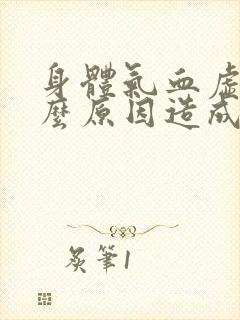 身體氣血虛
麼原因造成
炭筆1